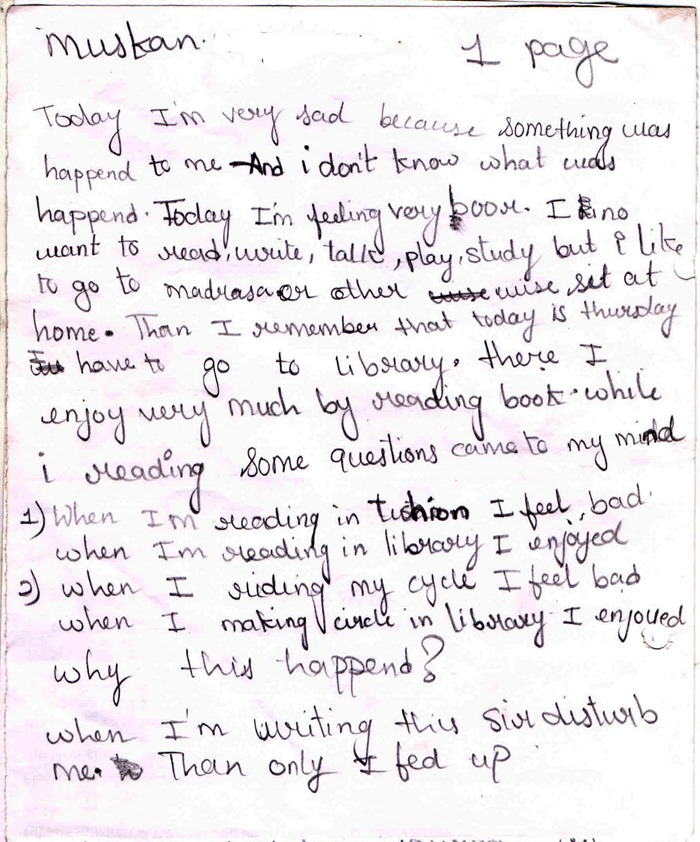 Muskan. 1 page
Today I'm very sad because something was
happend to me And i don't know what was
happend. Today I'm feeling very boor. I no
want to read, write, talk, play, study but i like
to go to madrasa or other wise sit at
home. Than I remember that today is thursday
have to go to library. there I
enjoy very much by reading book. while
i reading some questions came to my mind
1) When I'm reading in tushion I feel bad.
when I'm reading in library I enjoyed
2) when I riding my cycle I feel bad
when I making circle in library I enjoyed
why this happend?
when I'm writing this Sir disturb
me. Than only I fed up